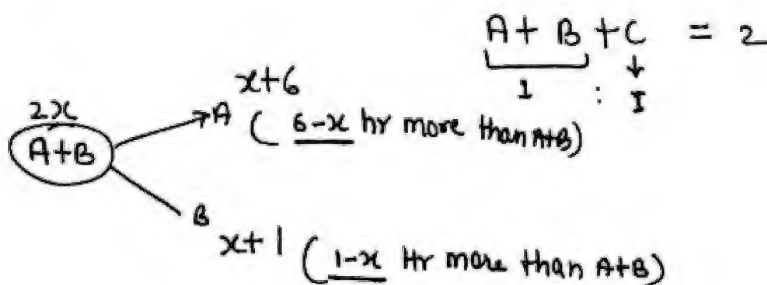 A + B + C = 2
1 : 1
x+6
2x
A+B
A ( 6-x hr more than A+B)
B
x+1 (1-x Hr more than A+B)